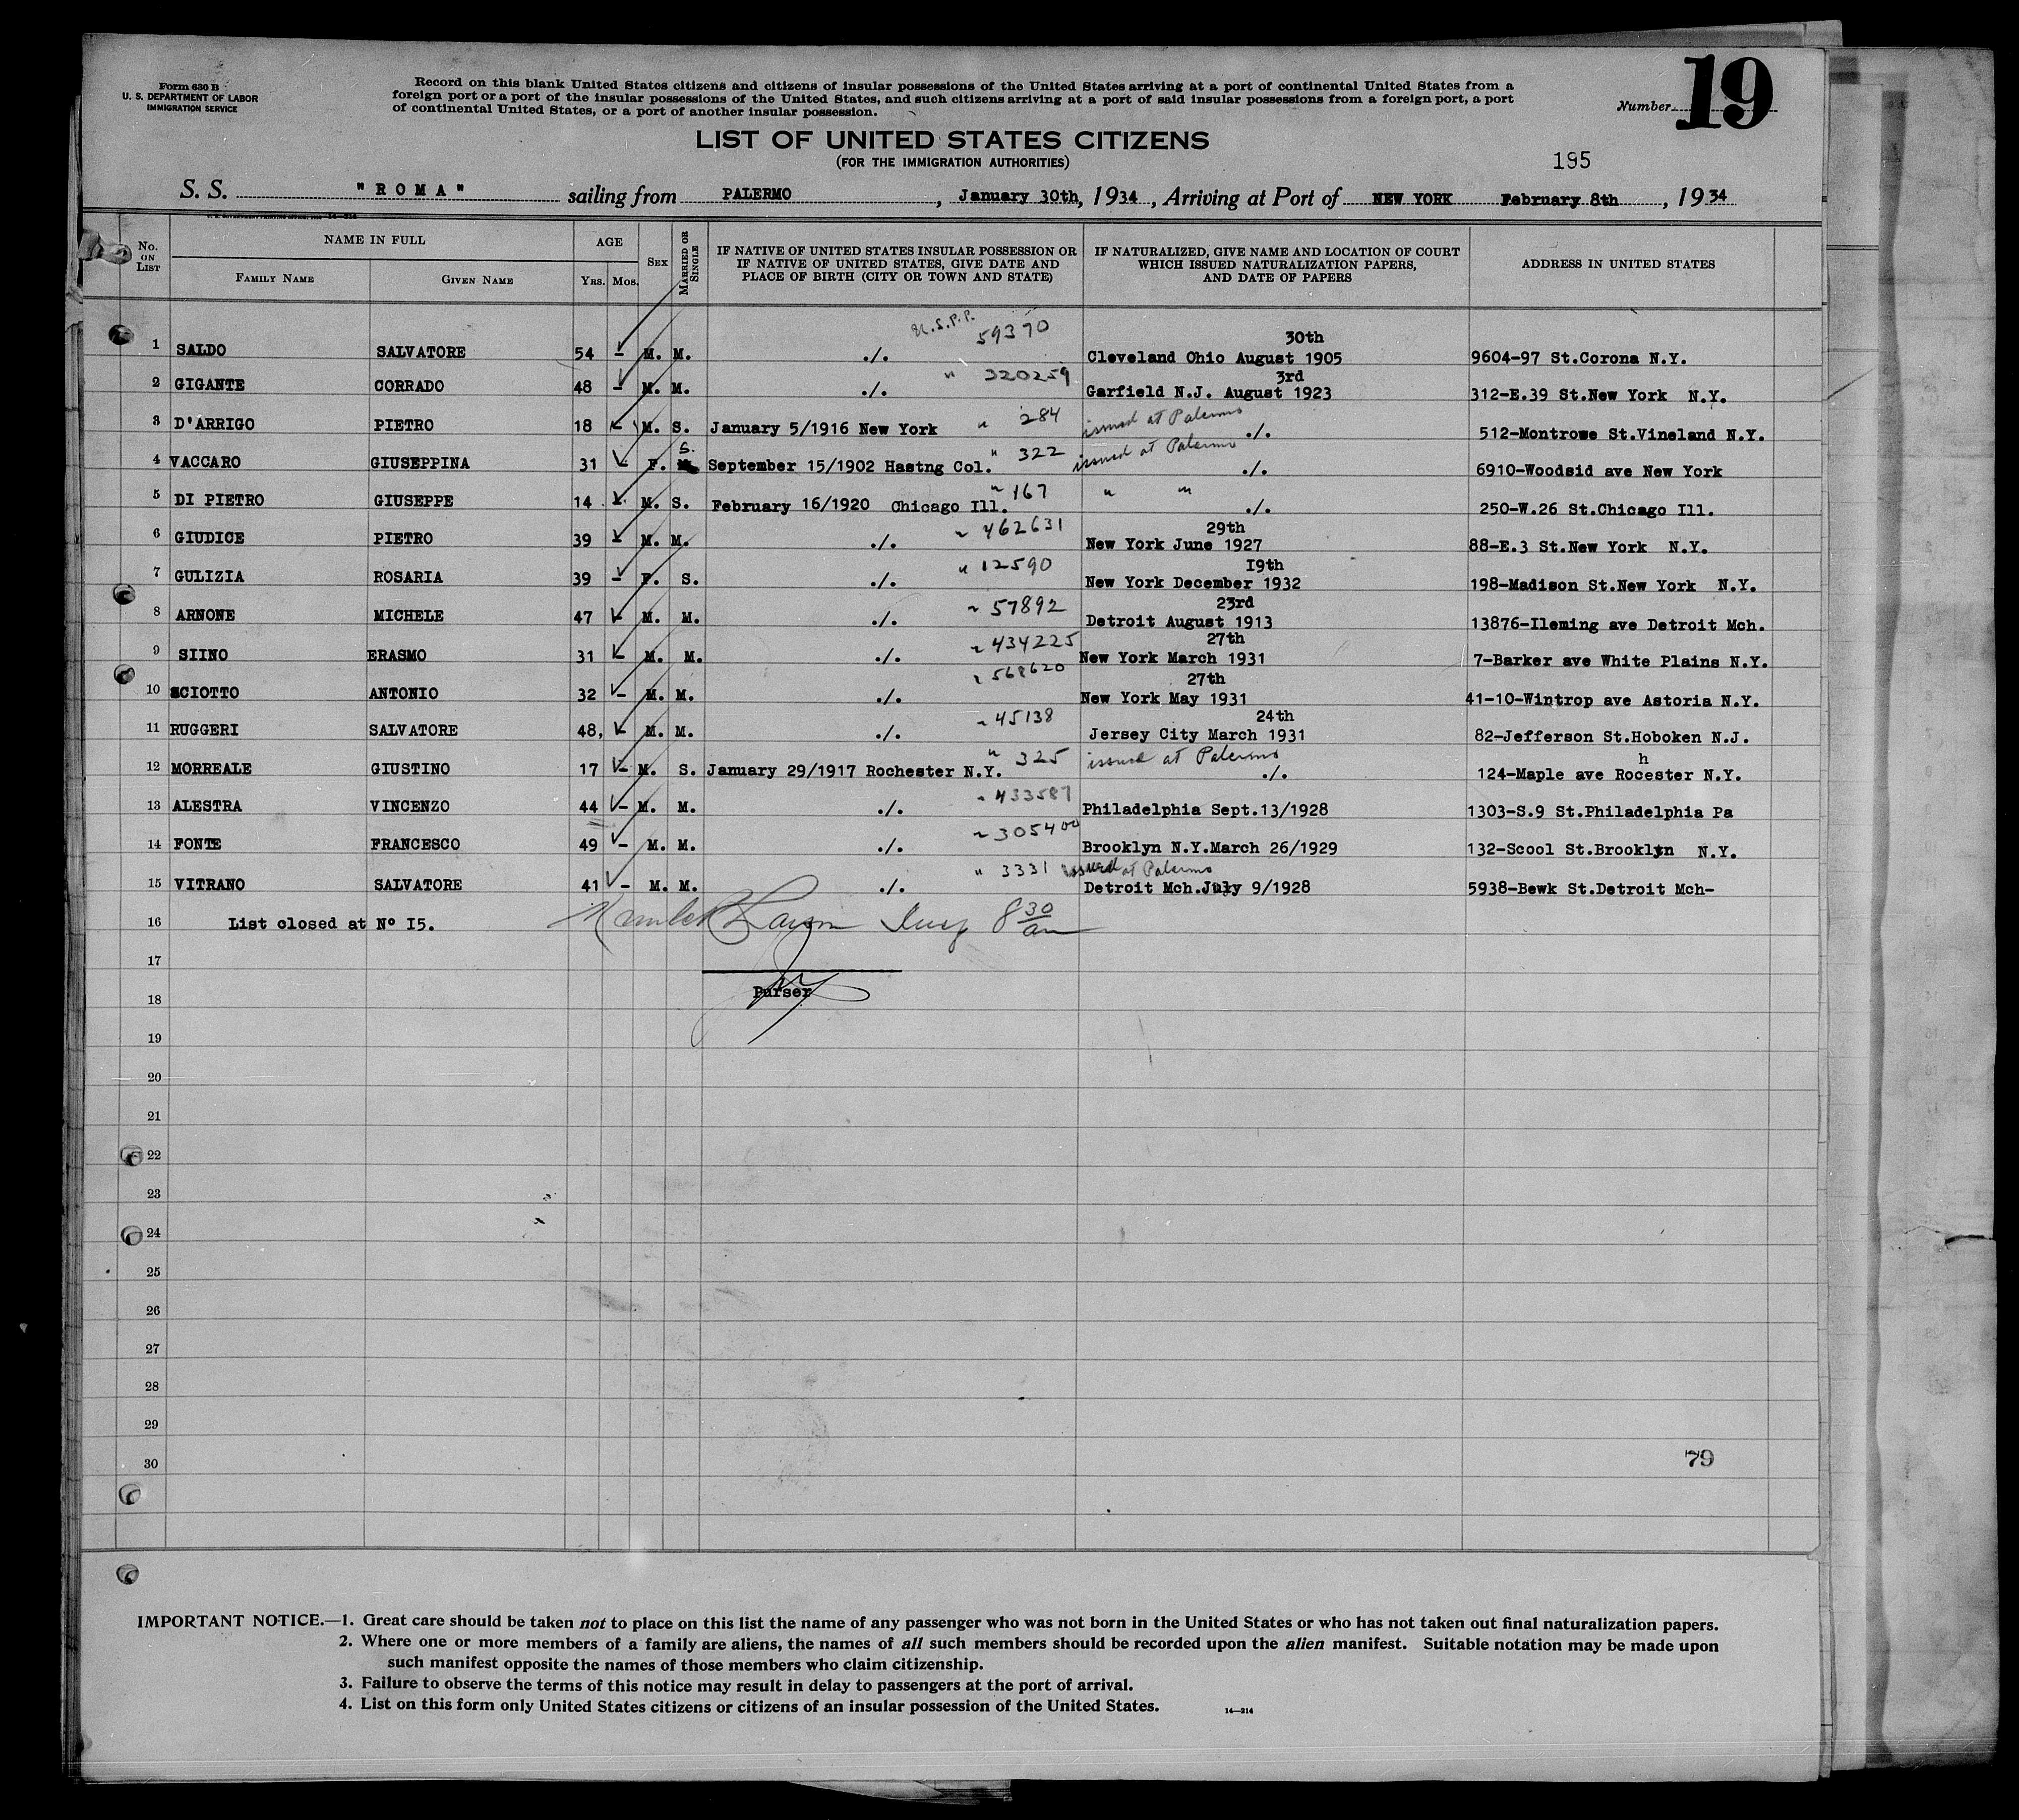 Form 630 B
U. S. DEPARTMENT OF LABOR
IMMIGRATION SERVICE
Record on this blank United States citizens and citizens of insular possessions of the United States arriving at a port of continental United States from a
foreign port or a port of the insular possessions of the United States, and such citizens arriving at a port of said insular possessions from a foreign port, a port
of continental United States, or a port of another insular possession.
Number 19
LIST OF UNITED STATES CITIZENS
(FOR THE IMMIGRATION AUTHORITIES)
195
S. S. "ROMA" sailing from PALERMO, January 30th, 1934, Arriving at Port of NEW YORK February 8th, 1934
No. ON LIST
NAME IN FULL
FAMILY NAME
GIVEN NAME
AGE
YRS. MOS.
SEX
MARRIED OR SINGLE
IF NATIVE OF UNITED STATES INSULAR POSSESSION OR
IF NATIVE OF UNITED STATES, GIVE DATE AND
PLACE OF BIRTH (CITY OR TOWN AND STATE)
IF NATURALIZED, GIVE NAME AND LOCATION OF COURT
WHICH ISSUED NATURALIZATION PAPERS,
AND DATE OF PAPERS
ADDRESS IN UNITED STATES
1 SALDO SALVATORE 54 - M. M. ./. U.S.P.P. 59370 Cleveland Ohio August 30th 1905 9604-97 St.Corona N.Y.
2 GIGANTE CORRADO 48 - M. M. ./. " 320259 Garfield N.J. August 3rd 1923 312-E.39 St.New York N.Y.
3 D'ARRIGO PIETRO 18 - M. S. January 5/1916 New York " 284 issued at Palermo ./. 512-Montrowe St.Vineland N.Y.
4 VACCARO GIUSEPPINA 31 - F. S. September 15/1902 Hastng Col. " 322 issued at Palermo ./. 6910-Woodsid ave New York
5 DI PIETRO GIUSEPPE 14 - M. S. February 16/1920 Chicago Ill. " 167 " " ./. 250-W.26 St.Chicago Ill.
6 GIUDICE PIETRO 39 - M. M. ./. " 462631 New York June 29th 1927 88-E.3 St.New York N.Y.
7 GULIZIA ROSARIA 39 - F. S. ./. " 12590 New York December I9th 1932 198-Madison St.New York N.Y.
8 ARNONE MICHELE 47 - M. M. ./. " 57892 Detroit August 23rd 1913 13876-Ileming ave Detroit Mch.
9 SIINO ERASMO 31 - M. M. ./. " 434225 New York March 27th 1931 7-Barker ave White Plains N.Y.
10 SCIOTTO ANTONIO 32 - M. M. ./. " 568620 New York May 27th 1931 41-10-Wintrop ave Astoria N.Y.
11 RUGGERI SALVATORE 48, - M. M. ./. " 45138 Jersey City March 24th 1931 82-Jefferson St.Hoboken N.J.
12 MORREALE GIUSTINO 17 - M. S. January 29/1917 Rochester N.Y. " 325 issued at Palermo ./. 124-Maple ave Rochester N.Y.
13 ALESTRA VINCENZO 44 - M. M. ./. " 433587 Philadelphia Sept.13/1928 1303-S.9 St.Philadelphia Pa
14 FONTE FRANCESCO 49 - M. M. ./. " 305400 Brooklyn N.Y.March 26/1929 132-Scool St.Brooklyn N.Y.
15 VITRANO SALVATORE 41 - M. M. ./. " 3331 issued at Palermo Detroit Mch.July 9/1928 5938-Bewk St.Detroit Mch-
16 List closed at Nº I5. 8 30 am
17
Purser
18
19
20
21
22
23
24
25
26
27
28
29
30
79
IMPORTANT NOTICE.—1. Great care should be taken not to place on this list the name of any passenger who was not born in the United States or who has not taken out final naturalization papers.
2. Where one or more members of a family are aliens, the names of all such members should be recorded upon the alien manifest. Suitable notation may be made upon
such manifest opposite the names of those members who claim citizenship.
3. Failure to observe the terms of this notice may result in delay to passengers at the port of arrival.
4. List on this form only United States citizens or citizens of an insular possession of the United States.
14—214